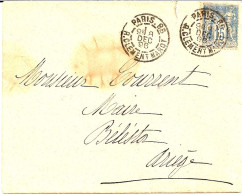 PARIS
24
DEC
R. CLEMENT MAROT
PARIS
R. CLEMENT MAROT
15
Monsieur Fourrent
Maire
Bélesta
Ariège